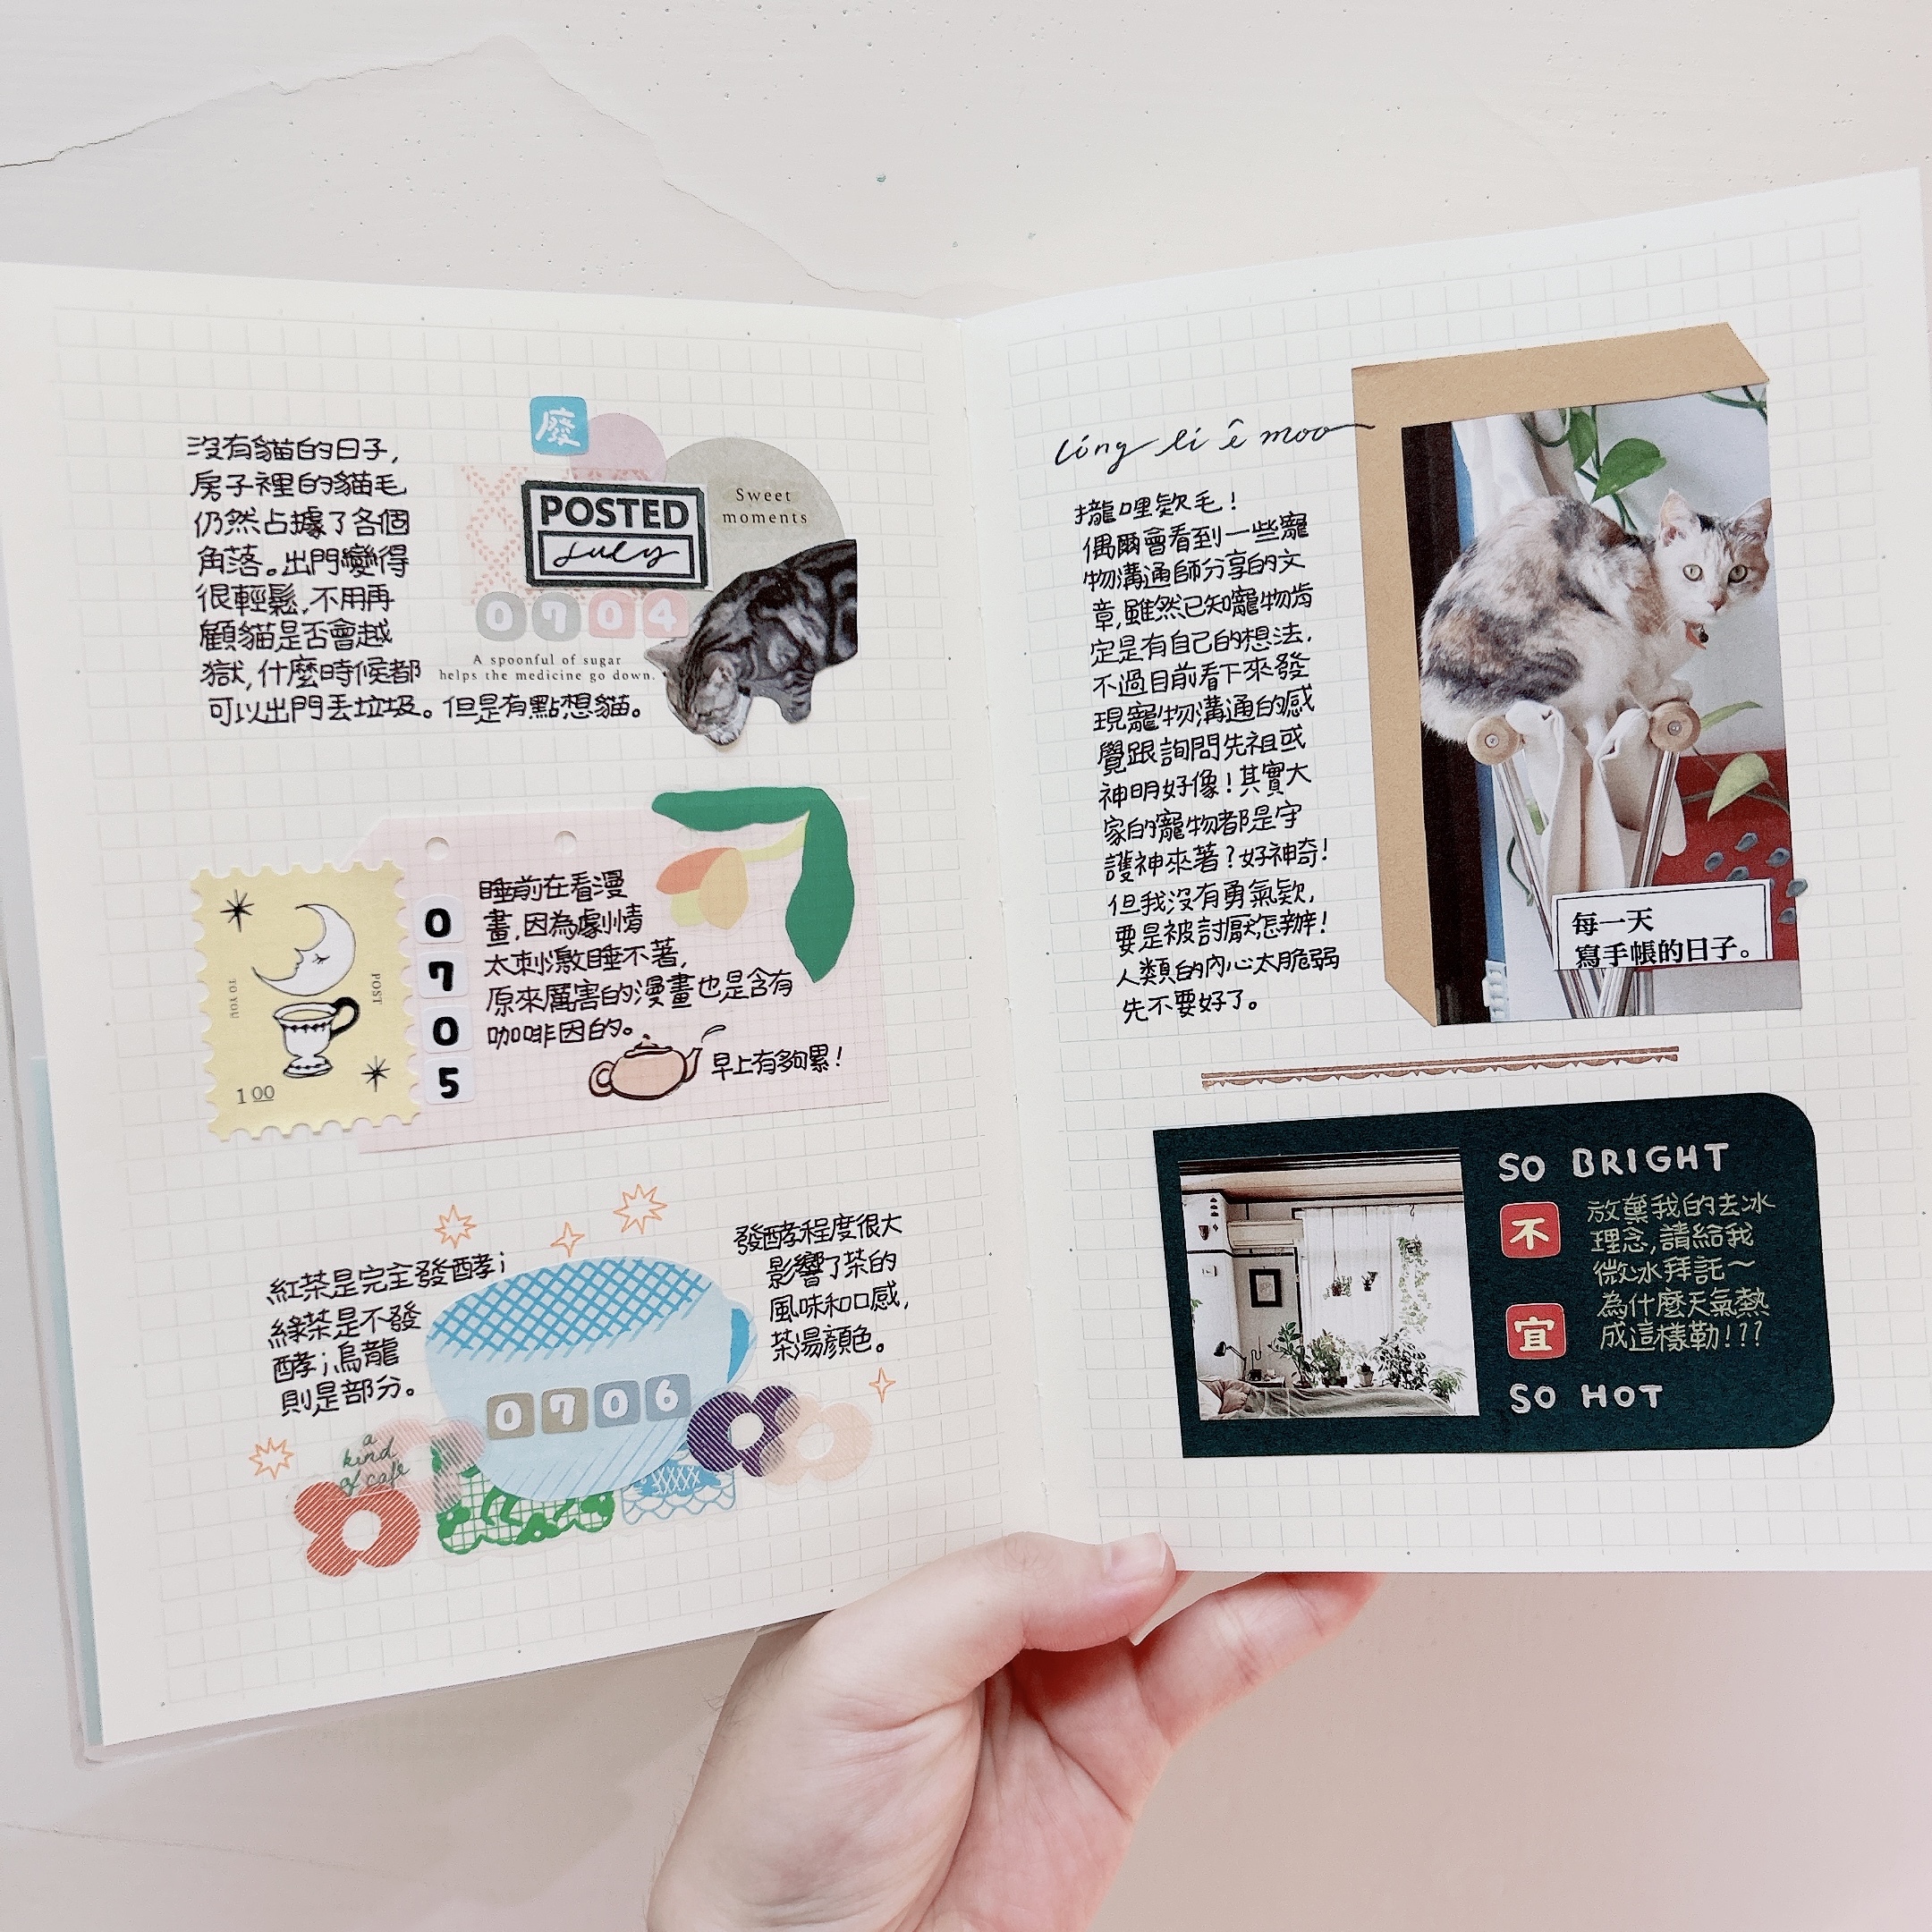 廢
沒有貓的日子,
房子裡的貓毛
仍然占據了各個
角落。出門變得
很輕鬆,不用再
顧貓是否會越
獄,什麼時候都
可以出門丟垃圾。但是有點想貓。
POSTED
july
Sweet
moments
0704
A spoonful of sugar
helps the medicine go down.
TO YOU
POST
1 00
0
7
0
5
睡前在看漫
畫,因為劇情
太刺激睡不著,
原來厲害的漫畫也是含有
咖啡因的。
早上有夠累!
紅茶是完全發酵;
綠茶是不發
酵;烏龍
則是部分。
發酵程度很大
影響了茶的
風味和口感,
茶湯顏色。
0706
a
kind
of cafe
lóng li ê moo
攏哩欸毛!
偶爾會看到一些寵
物溝通師分享的文
章,雖然已知寵物肯
定是有自己的想法,
不過目前看下來發
現寵物溝通的感
覺跟詢問先祖或
神明好像!其實大
家的寵物都是守
護神來著?好神奇!
但我沒有勇氣欸,
要是被討厭怎辦!
人類的內心太脆弱
先不要好了。
每一天
寫手帳的日子。
SO BRIGHT
不
宜
放棄我的去冰
理念,請給我
微冰拜託～
為什麼天氣熱
成這樣勒!??
SO HOT